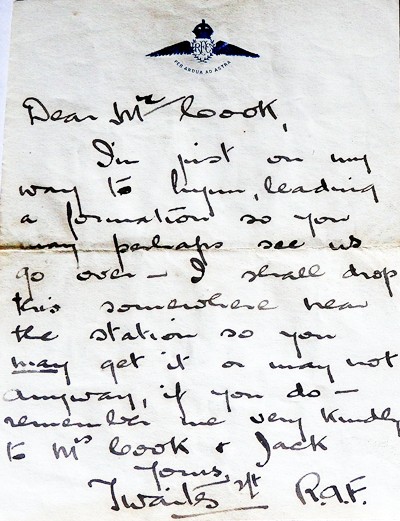 RFC
PER ARDUA AD ASTRA
Dear Mr Cook,
I'm just on my
way to Lynn, leading
a formation so you
may perhaps see us
go over – I shall drop
this somewhere near
the station so you
may get it or may not
Anyway, if you do –
remember me very kindly
to Mrs Cook & Jack
Yours,
Twaites Lt R.A.F.